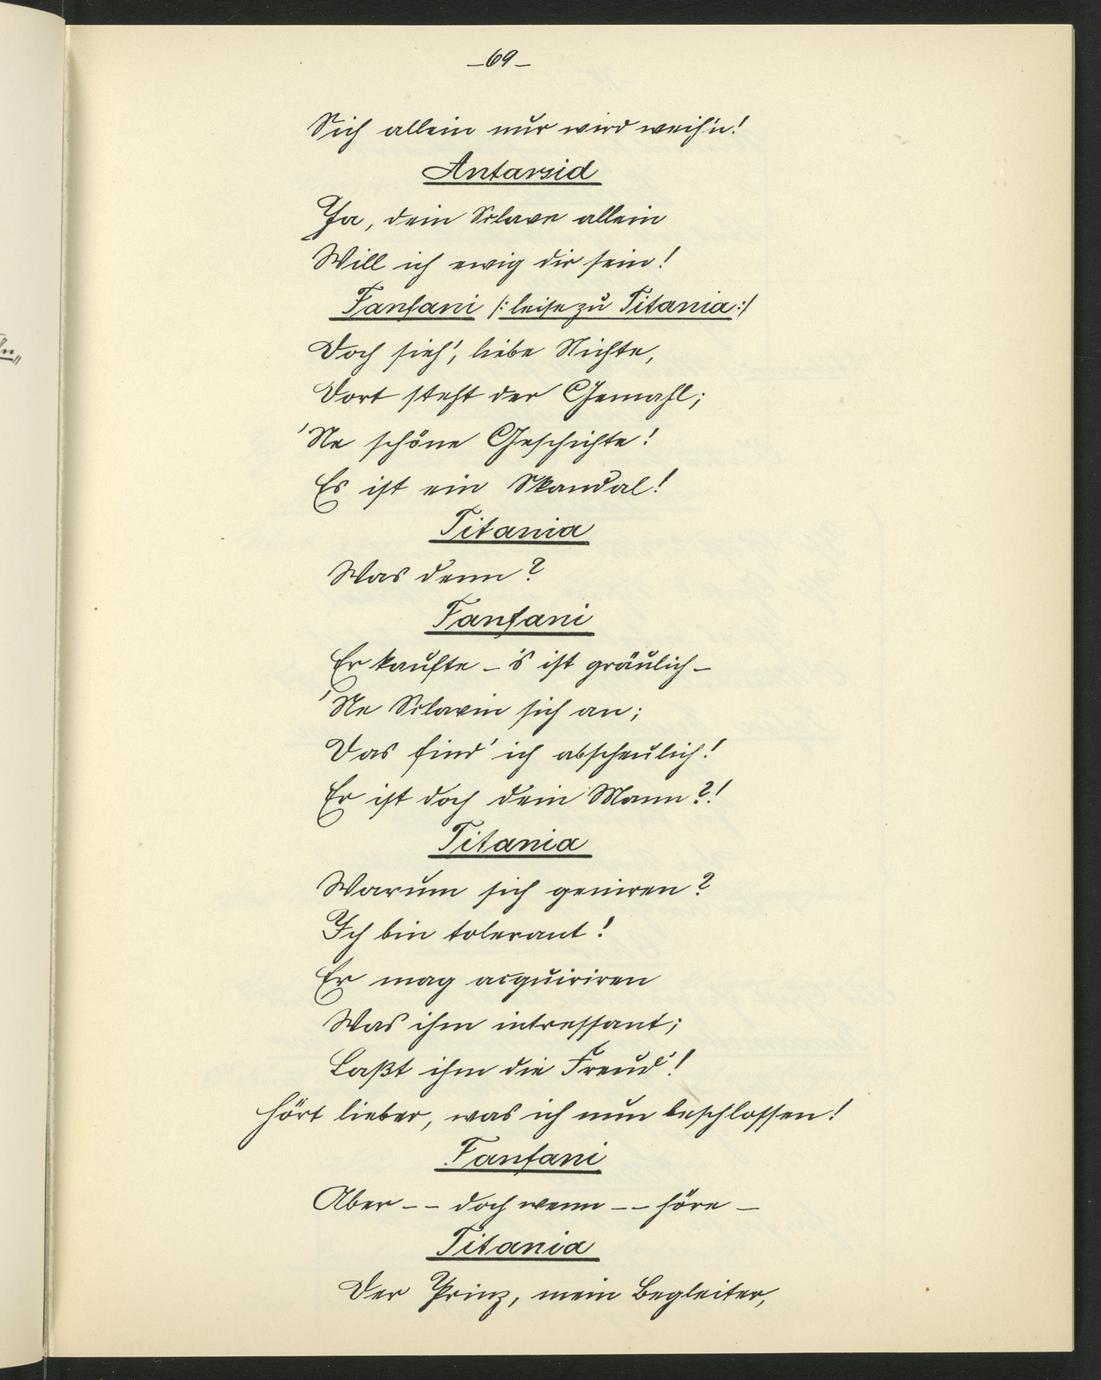 –69–
Sich allein nur wird weih'n!
Antarsid
Ja, dein Sclave allein
Will ich ewig dir sein!
Fanfani /: leise zu Titania :/
Doch sieh', liebe Nichte,
Dort steht der Gemahl;
'Ne schöne Geschichte!
Es ist ein Skandal!
Titania
Was denn?
Fanfani
Er kaufte – 's ist gräulich –
'Ne Sclavin sich an;
Das find' ich abscheulich!
Er ist doch dein Mann?!
Titania
Warum sich geniren?
Ich bin tolerant!
Er mag acquiriren
Was ihm intressant;
Laßt ihm die Freud'!
Hört lieber, was ich nun beschlossen!
Fanfani
Aber – – doch wenn – – höre –
Titania
Der Prinz, mein Begleiter,